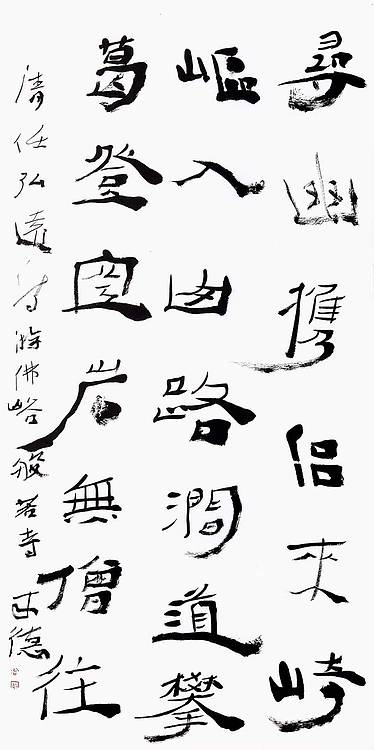 尋幽攜侶來崎
嶇入山路澗道攀
葛登空岩無僧往
清任弘遠詩游佛峪般若寺 德